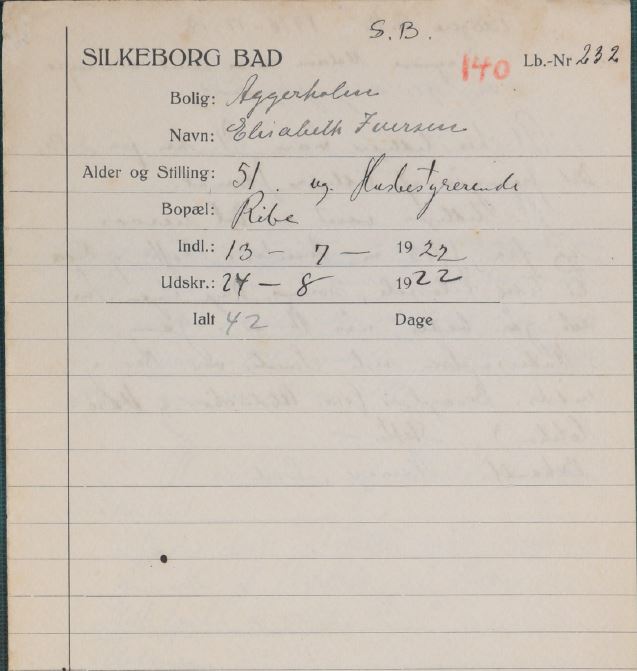 S.B.
SILKEBORG BAD 140 Lb.-Nr 232
Bolig: Aggerholm
Navn: Elisabeth Iversen
Alder og Stilling: 51. ug. Husbestyrerende
Bopæl: Ribe
Indl.: 13 - 7 - 1922
Udskr.: 24 - 8 1922
Ialt 42 Dage